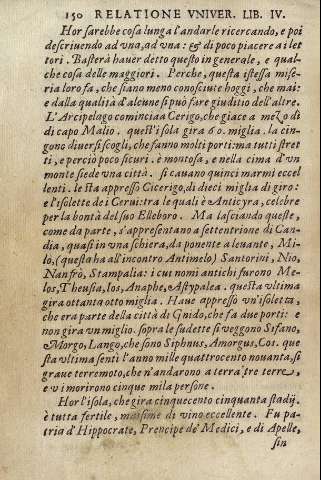 150 RELATIONE VNIVER. LIB. IV.
Hor sarebbe cosa lunga l'andarle ricercando, e poi
descriuendo ad vna, ad vna: & di poco piacere ai let
tori. Basterà hauer detto questo in generale, e qual
che cosa delle maggiori. Perche, questa istessa mise-
ria loro fa, che siano meno conosciute hoggi, che mai:
e dalla qualità d'alcune si può fare giuditio dell'altre.
L'Arcipelago comincia a Cerigo, che giace a mezo dì
di capo Malio. quest'isola gira 60. miglia. la cin-
gono diuersi scogli, che fanno molti porti: ma tutti stret
ti, e perciò poco sicuri. è montosa, e nella cima d'vn
monte siede vna città. si cauano quinci marmi eccel
lenti. le sta appresso Cicerigo, di dieci miglia di giro:
e l'isolette dei Cerui: tra le quali è Anticyra, celebre
per la bontà del suo Elleboro. Ma lasciando queste,
come da parte, s'appresentano a settentrione di Can-
dia, quasi in vna schiera, da ponente a leuante, Mi-
lo, (questa ha all'incontro Antimelo) Santorini, Nio,
Nanfrò, Stampalia: i cui nomi antichi furono Me-
los, Theusia, Ios, Anaphe, Astypalea. questa vltima
gira ottanta otto miglia. Haue appresso vn'isoletta,
che era parte della città di Gnido, che fa due porti: e
non gira vn miglio. sopra le sudette si veggono Sifano,
Morgo, Lango, che sono Siphnus, Amorgus, Cos. que
sta vltima sentì l'anno mille quattrocento nouanta, sì
graue terremoto, che n'andarono a terra tre terre,
e vi morirono cinque mila persone.
Hor l'isola, che gira cinquecento cinquanta stadij.
è tutta fertile, massime di vino eccellente. Fu pa-
tria d'Hippocrate, Prencipe de' Medici, e di Apelle,
sin